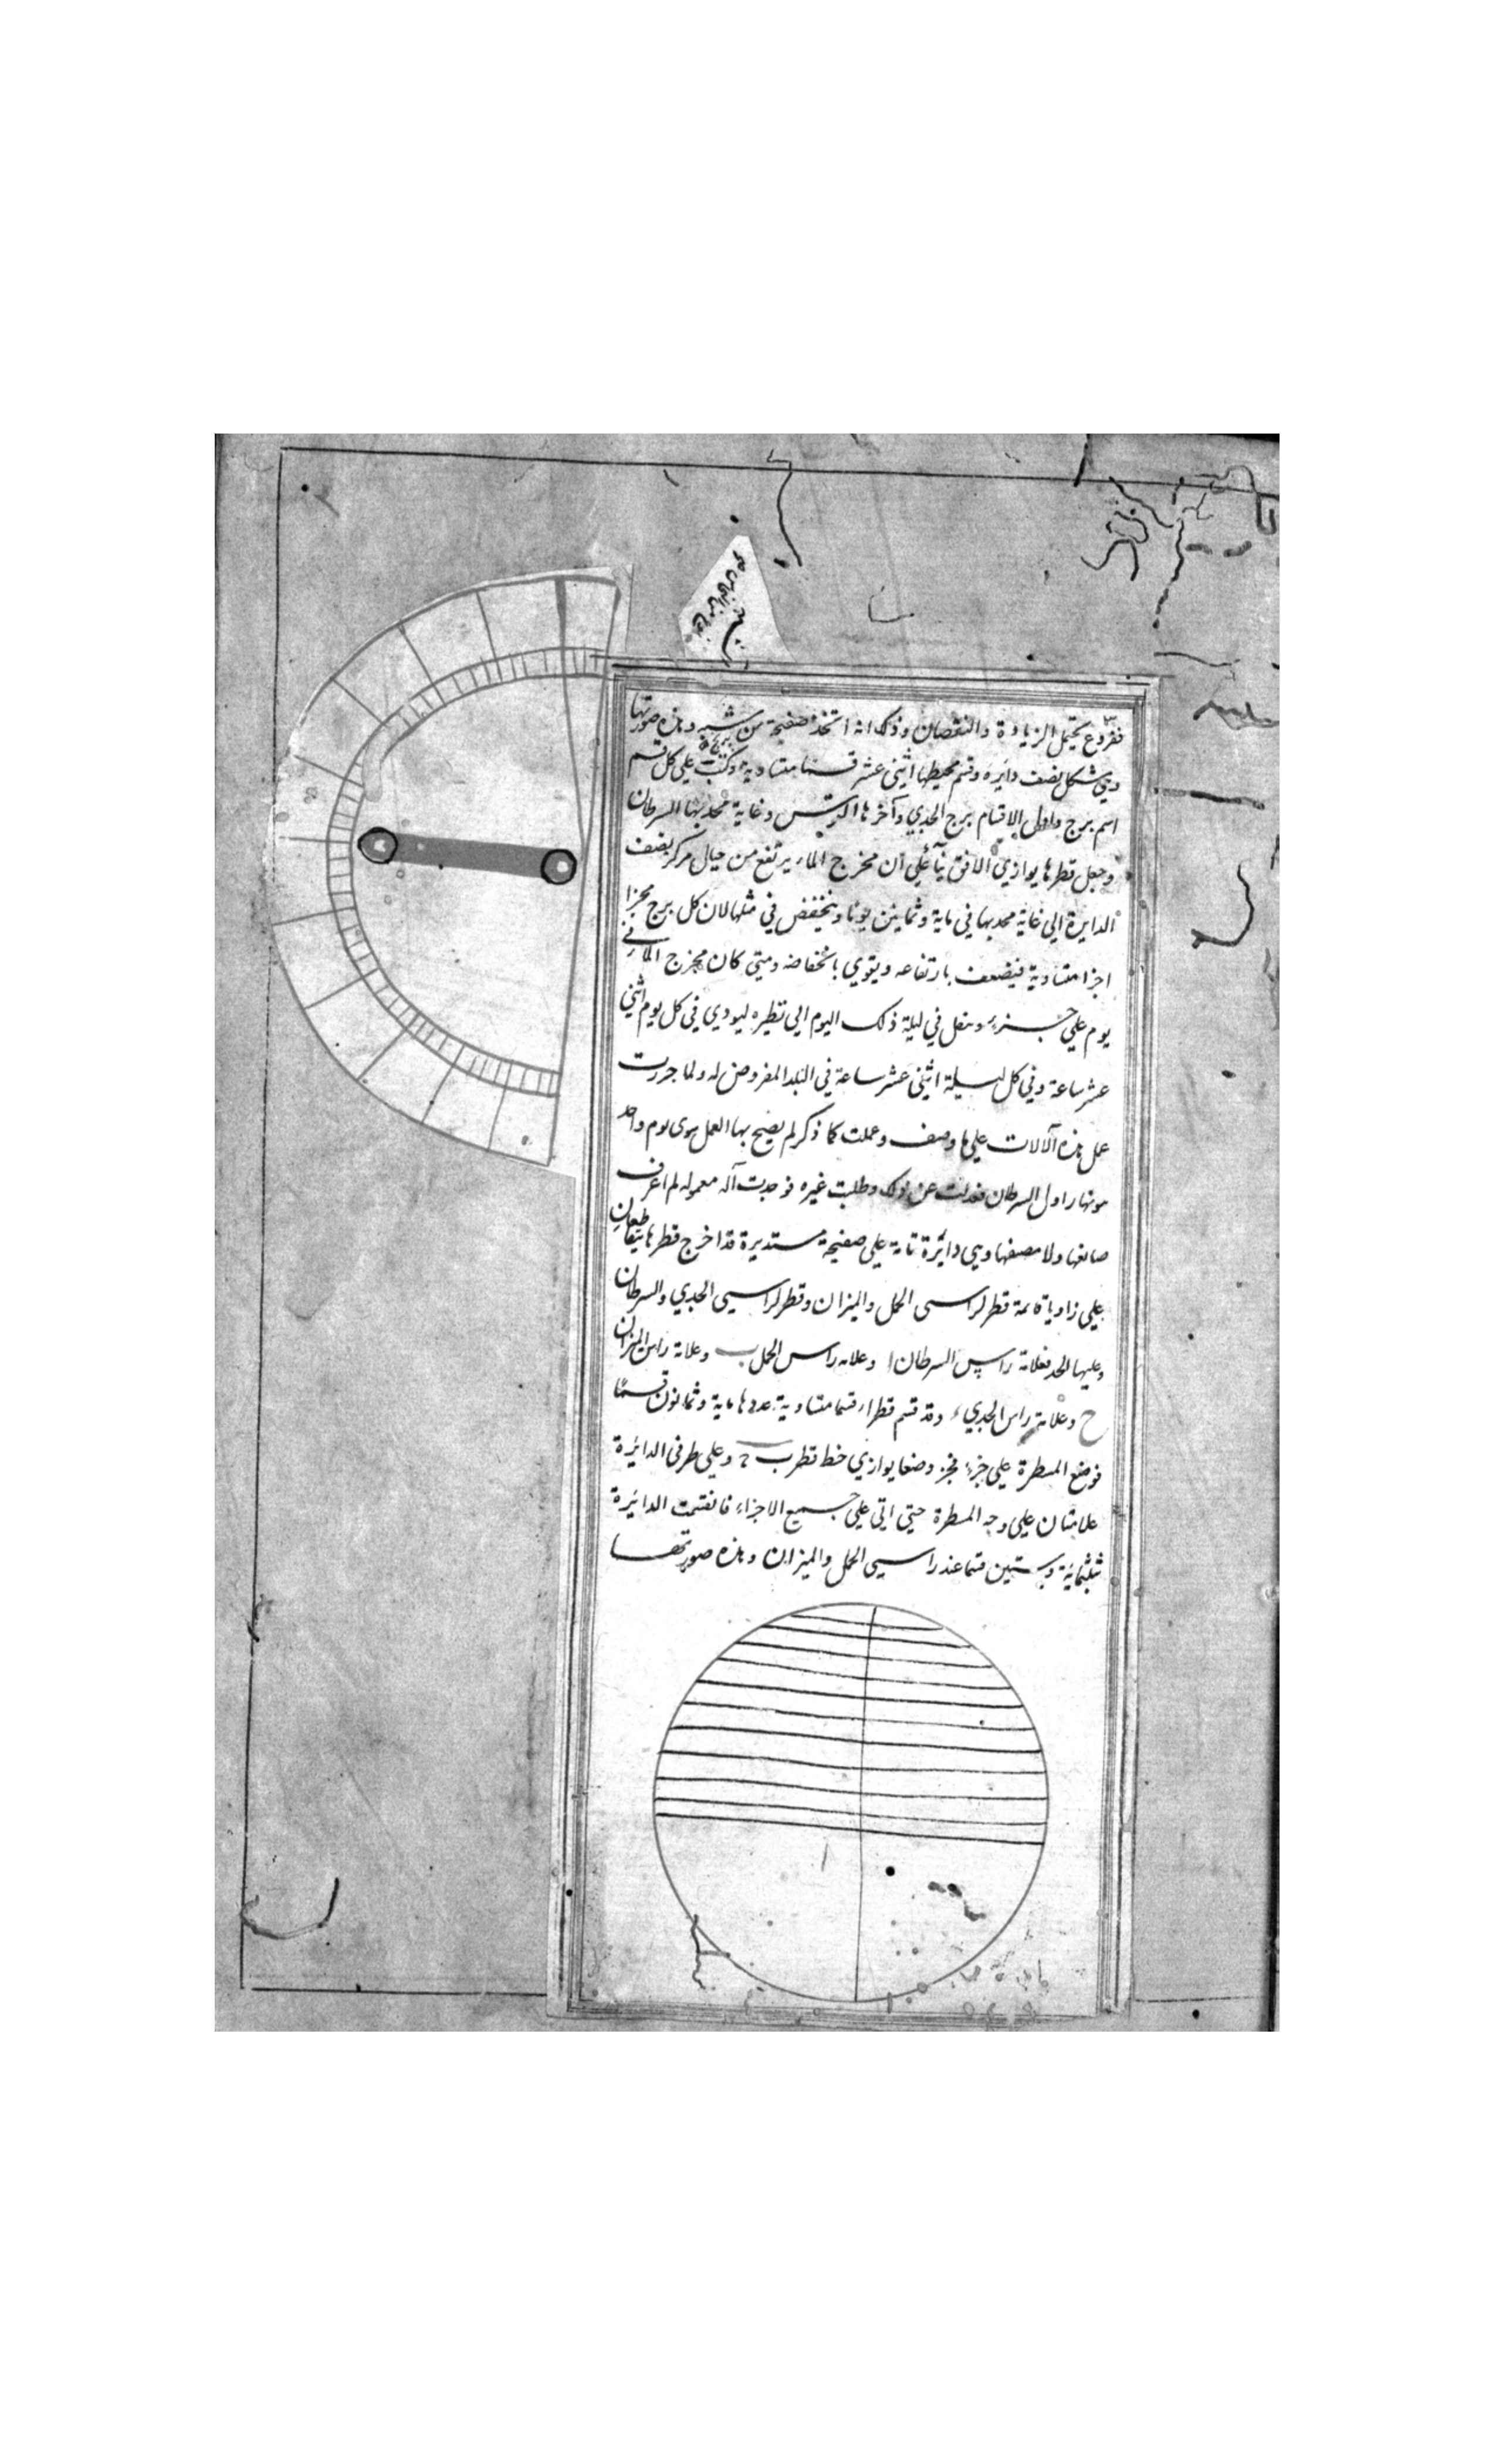 مفروغ يحتمل الزيادة والنقصان وذلك انه اتخذ صفيحة من شبه وهذه صورتها
وهي شكل نصف دايرة وقسم محيطها اثنى عشر قسما متساوية وكتب على كل قسم
اسم برج واول الاقسام برج الجدي وآخرها القوس وغاية محدبها السرطان
وجعل قطرها يوازي الافق بناً على ان مخرج الماء يرتفع من حيال مركز نصف
الدايرة الى غاية محدبها في ماية وثمانين يوما وينخفض في مثلها لان كل برج مجزا
اجزا متساوية فيضعف بارتفاعه ويقوي بانخفاضه ومتى كان مخرج الماء في
يوم على جزء ينقل في ليلة ذلك اليوم الى نظيره ليودي في كل يوم اثنى
عشر ساعة وفي كل ليلة اثنى عشر ساعة في البلد المفروض له ولما جررت
عمل هذه الآلات على ما وصف وعملت كما ذكر لم يصح بها العمل سوى يوم واحد
هو نهار اول السرطان فعدلت عن ذلك وطلبت غيره فوجدت آلة معموله لم اعرف
صانعها ولا مصنفها وهي دائرة تامة على صفيحة مستديرة قد اخرج قطرها يتقاطعان
على زاوية قائمة قطر لراسي الحمل والميزان وقطر لراسي الجدي والسرطان
وعليها احد فعلامة راس السرطان ا وعلامه راس الحمل ب وعلامة راس الميزان
ح وعلامة راس الجدي ء وقد قسم قطر اء قسما متساوية عددها ماية وثمانون قسمًا
فوضع المسطرة على جزء فجزء وضعا يوازي خط قطر ب ح وعلى طرفي الدائرة
علامتان على وجه المسطرة حتى اتى على جميع الاجزاء فانقسمت الدائرة
ثلثمائة وستين قسما عند راسي الحمل والميزان وهذه صورتها